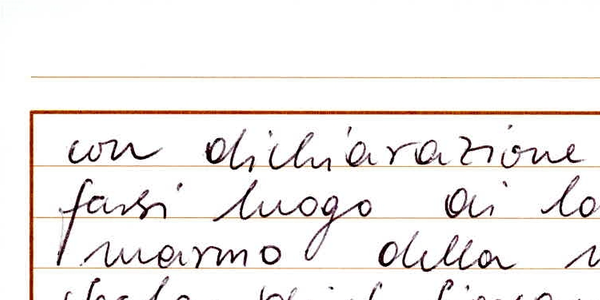 con dichiarazione
farsi luogo ai la
marmo della